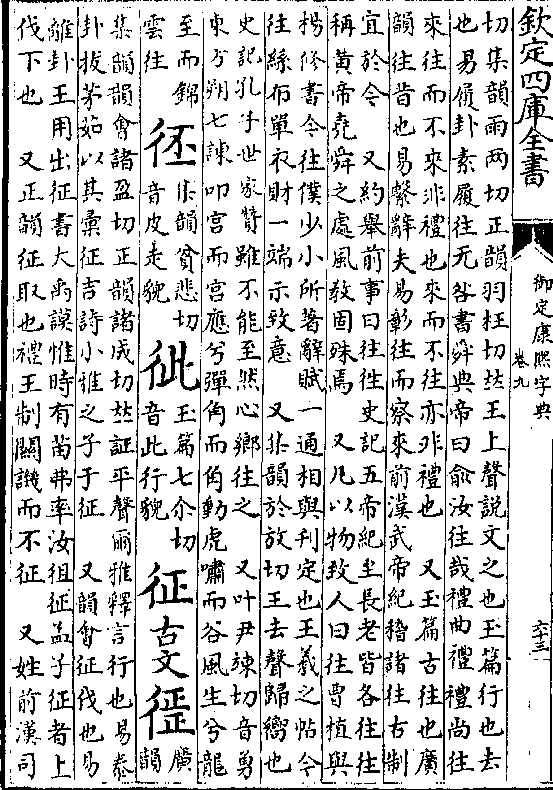 欽定四庫全書
御定康熙字典
卷九
六十三
切集韻雨两切正韻羽枉切𠀤王上聲說文之也玉篇行也去
也易履卦素履往无咎書舜典帝曰俞汝往哉禮曲禮禮尚往
來往而不來非禮也來而不往亦非禮也 又玉篇古往也廣
韻往昔也易繫辭夫易彰往而察來前漢武帝紀稽諸往古制
宜於今 又約舉前事曰往往史記五帝紀至長老皆各往往
稱黃帝堯舜之處風敎固殊焉 又凡以物致人曰往曹植與
楊修書今往僕少小所著辭賦一通相與刋定也王羲之帖今
往絲布單衣財一端示致意 又集韻於放切王去聲歸嚮也
史記孔子世家贊雖不能至然心鄉往之 又叶尹竦切音勇
東方朔七諫叩宮而宮應兮彈角而角動虎嘯而谷風生兮龍
至而錦
雲往
集韻貧悲切
音皮走貌
玉篇七尒切
音此行貌
征 古文徰 廣
韻
集韻韻會諸盈切正韻諸成切𠀤証平聲爾雅釋言行也易泰
卦拔茅茹以其彙征吉詩小雅之子于征 又韻會征伐也易
離卦王用出征書大禹謨惟時有苗弗率汝徂征孟子征者上
伐下也 又正韻征取也禮王制關譏而不征 又姓前漢司